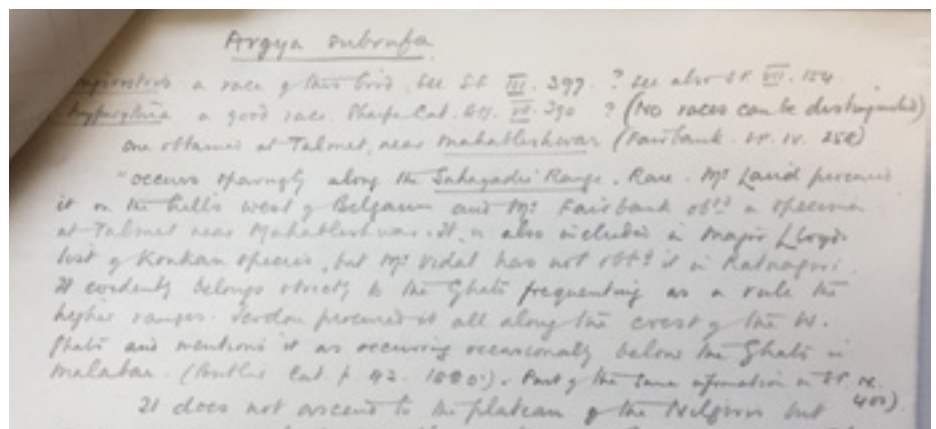 Argya subrufa
a race of this bird, see S.F. III. 397. ? see also S.F. VII. 154
a good race. Sharpe Cat. B.M. VII. 390 ? (No races can be distinguished)
one obtained at Talmet, near Mahableshwar (Fairbank. S.F. IV. 258)
"occurs sparingly along the Sahayadri Range. Rare. Mr Laird procured
it on the hills west of Belgaum and Mr Fairbank obtd a specimen
at Talmet near Mahableshwar. It is also included in Major Lloyds
list of Konkan species, but Mr Vidal has not obtd it in Ratnagiri.
It evidently belongs strictly to the Ghats frequenting as a rule the
higher ranges. Jerdon procured it all along the crest of the W.
Ghats and mentions it as occurring occasionally below the Ghats in
Malabar. (Butler Cat. p 42. 1880.). Part of the same information in S.F. IX.
400).
It does not ascend to the plateau of the Nilgiris but